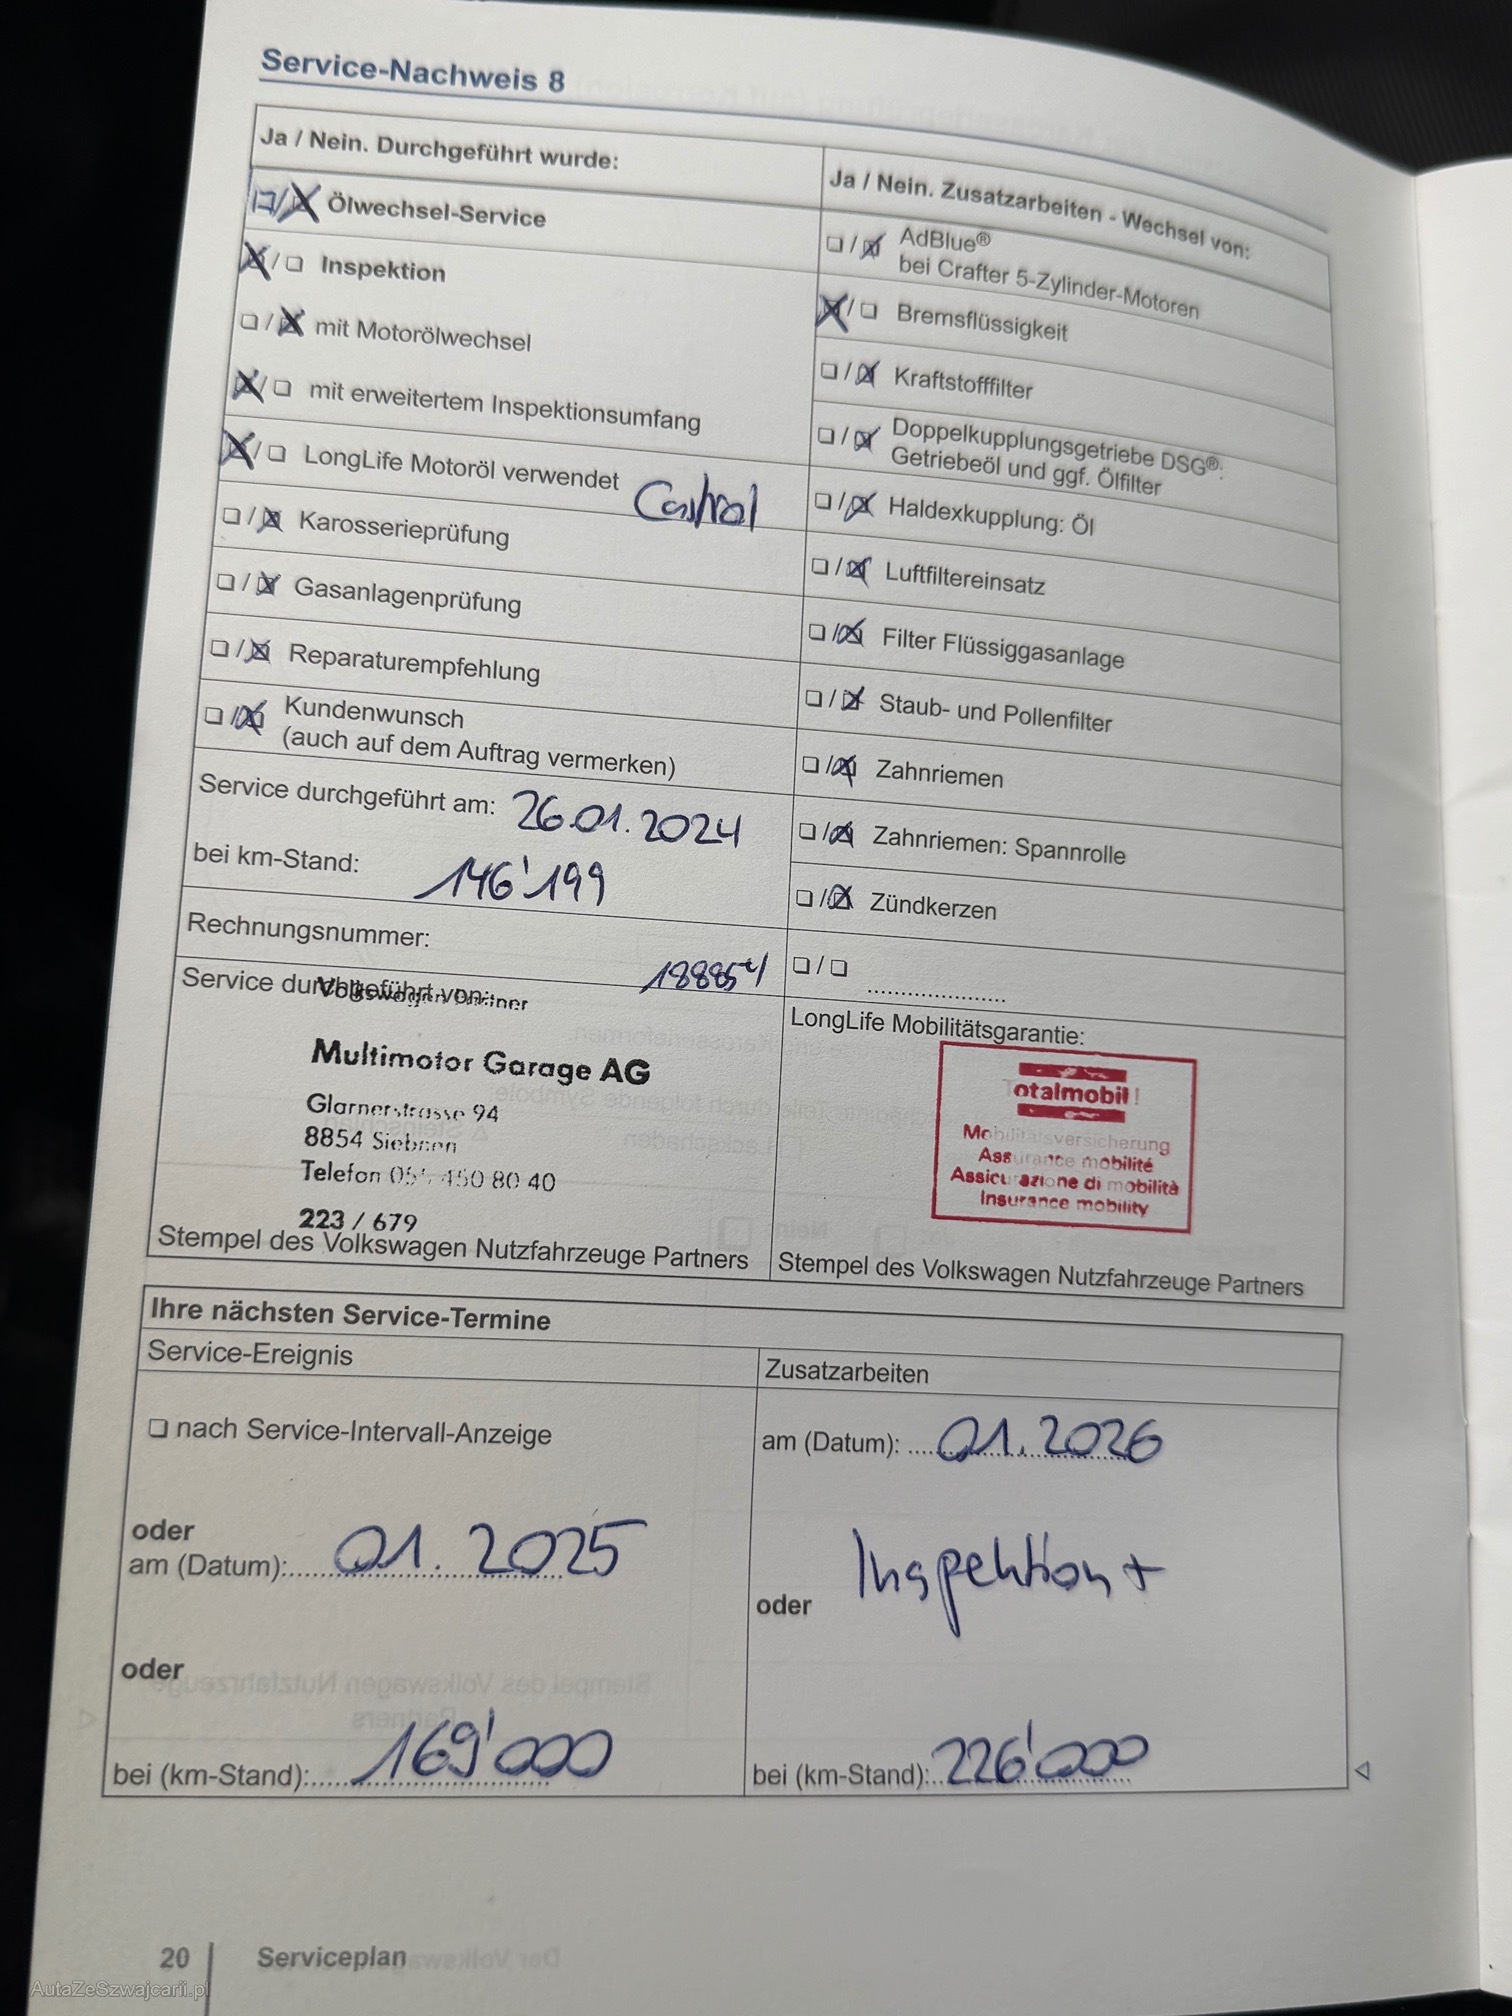 Service-Nachweis 8
Ja / Nein. Durchgeführt wurde:
Ölwechsel-Service
Inspektion
mit Motorölwechsel
mit erweitertem Inspektionsumfang
LongLife Motoröl verwendet Castrol
Karosserieprüfung
Gasanlagenprüfung
Reparaturempfehlung
Kundenwunsch
(auch auf dem Auftrag vermerken)
Service durchgeführt am: 26.01.2024
bei km-Stand: 146'199
Rechnungsnummer:
188854
Service durchgeführt von:
Volkswagen Partner
Multimotor Garage AG
Glarnerstrasse 94
8854 Siebnen
Telefon 055 450 80 40
223 / 679
Stempel des Volkswagen Nutzfahrzeuge Partners
Ja / Nein. Zusatzarbeiten - Wechsel von:
AdBlue®
bei Crafter 5-Zylinder-Motoren
Bremsflüssigkeit
Kraftstofffilter
Doppelkupplungsgetriebe DSG®:
Getriebeöl und ggf. Ölfilter
Haldexkupplung: Öl
Luftfiltereinsatz
Filter Flüssiggasanlage
Staub- und Pollenfilter
Zahnriemen
Zahnriemen: Spannrolle
Zündkerzen
LongLife Mobilitätsgarantie:
Totalmobil!
Mobilitätsversicherung
Assurance mobilité
Assicurazione di mobilità
Insurance mobility
Stempel des Volkswagen Nutzfahrzeuge Partners
Ihre nächsten Service-Termine
Service-Ereignis
nach Service-Intervall-Anzeige
oder
am (Datum): 01.2025
oder
bei (km-Stand): 169'000
Zusatzarbeiten
am (Datum): 01.2026
Inspektion +
oder
bei (km-Stand): 226'000
20 Serviceplan
AutaZeSzwajcarii.pl